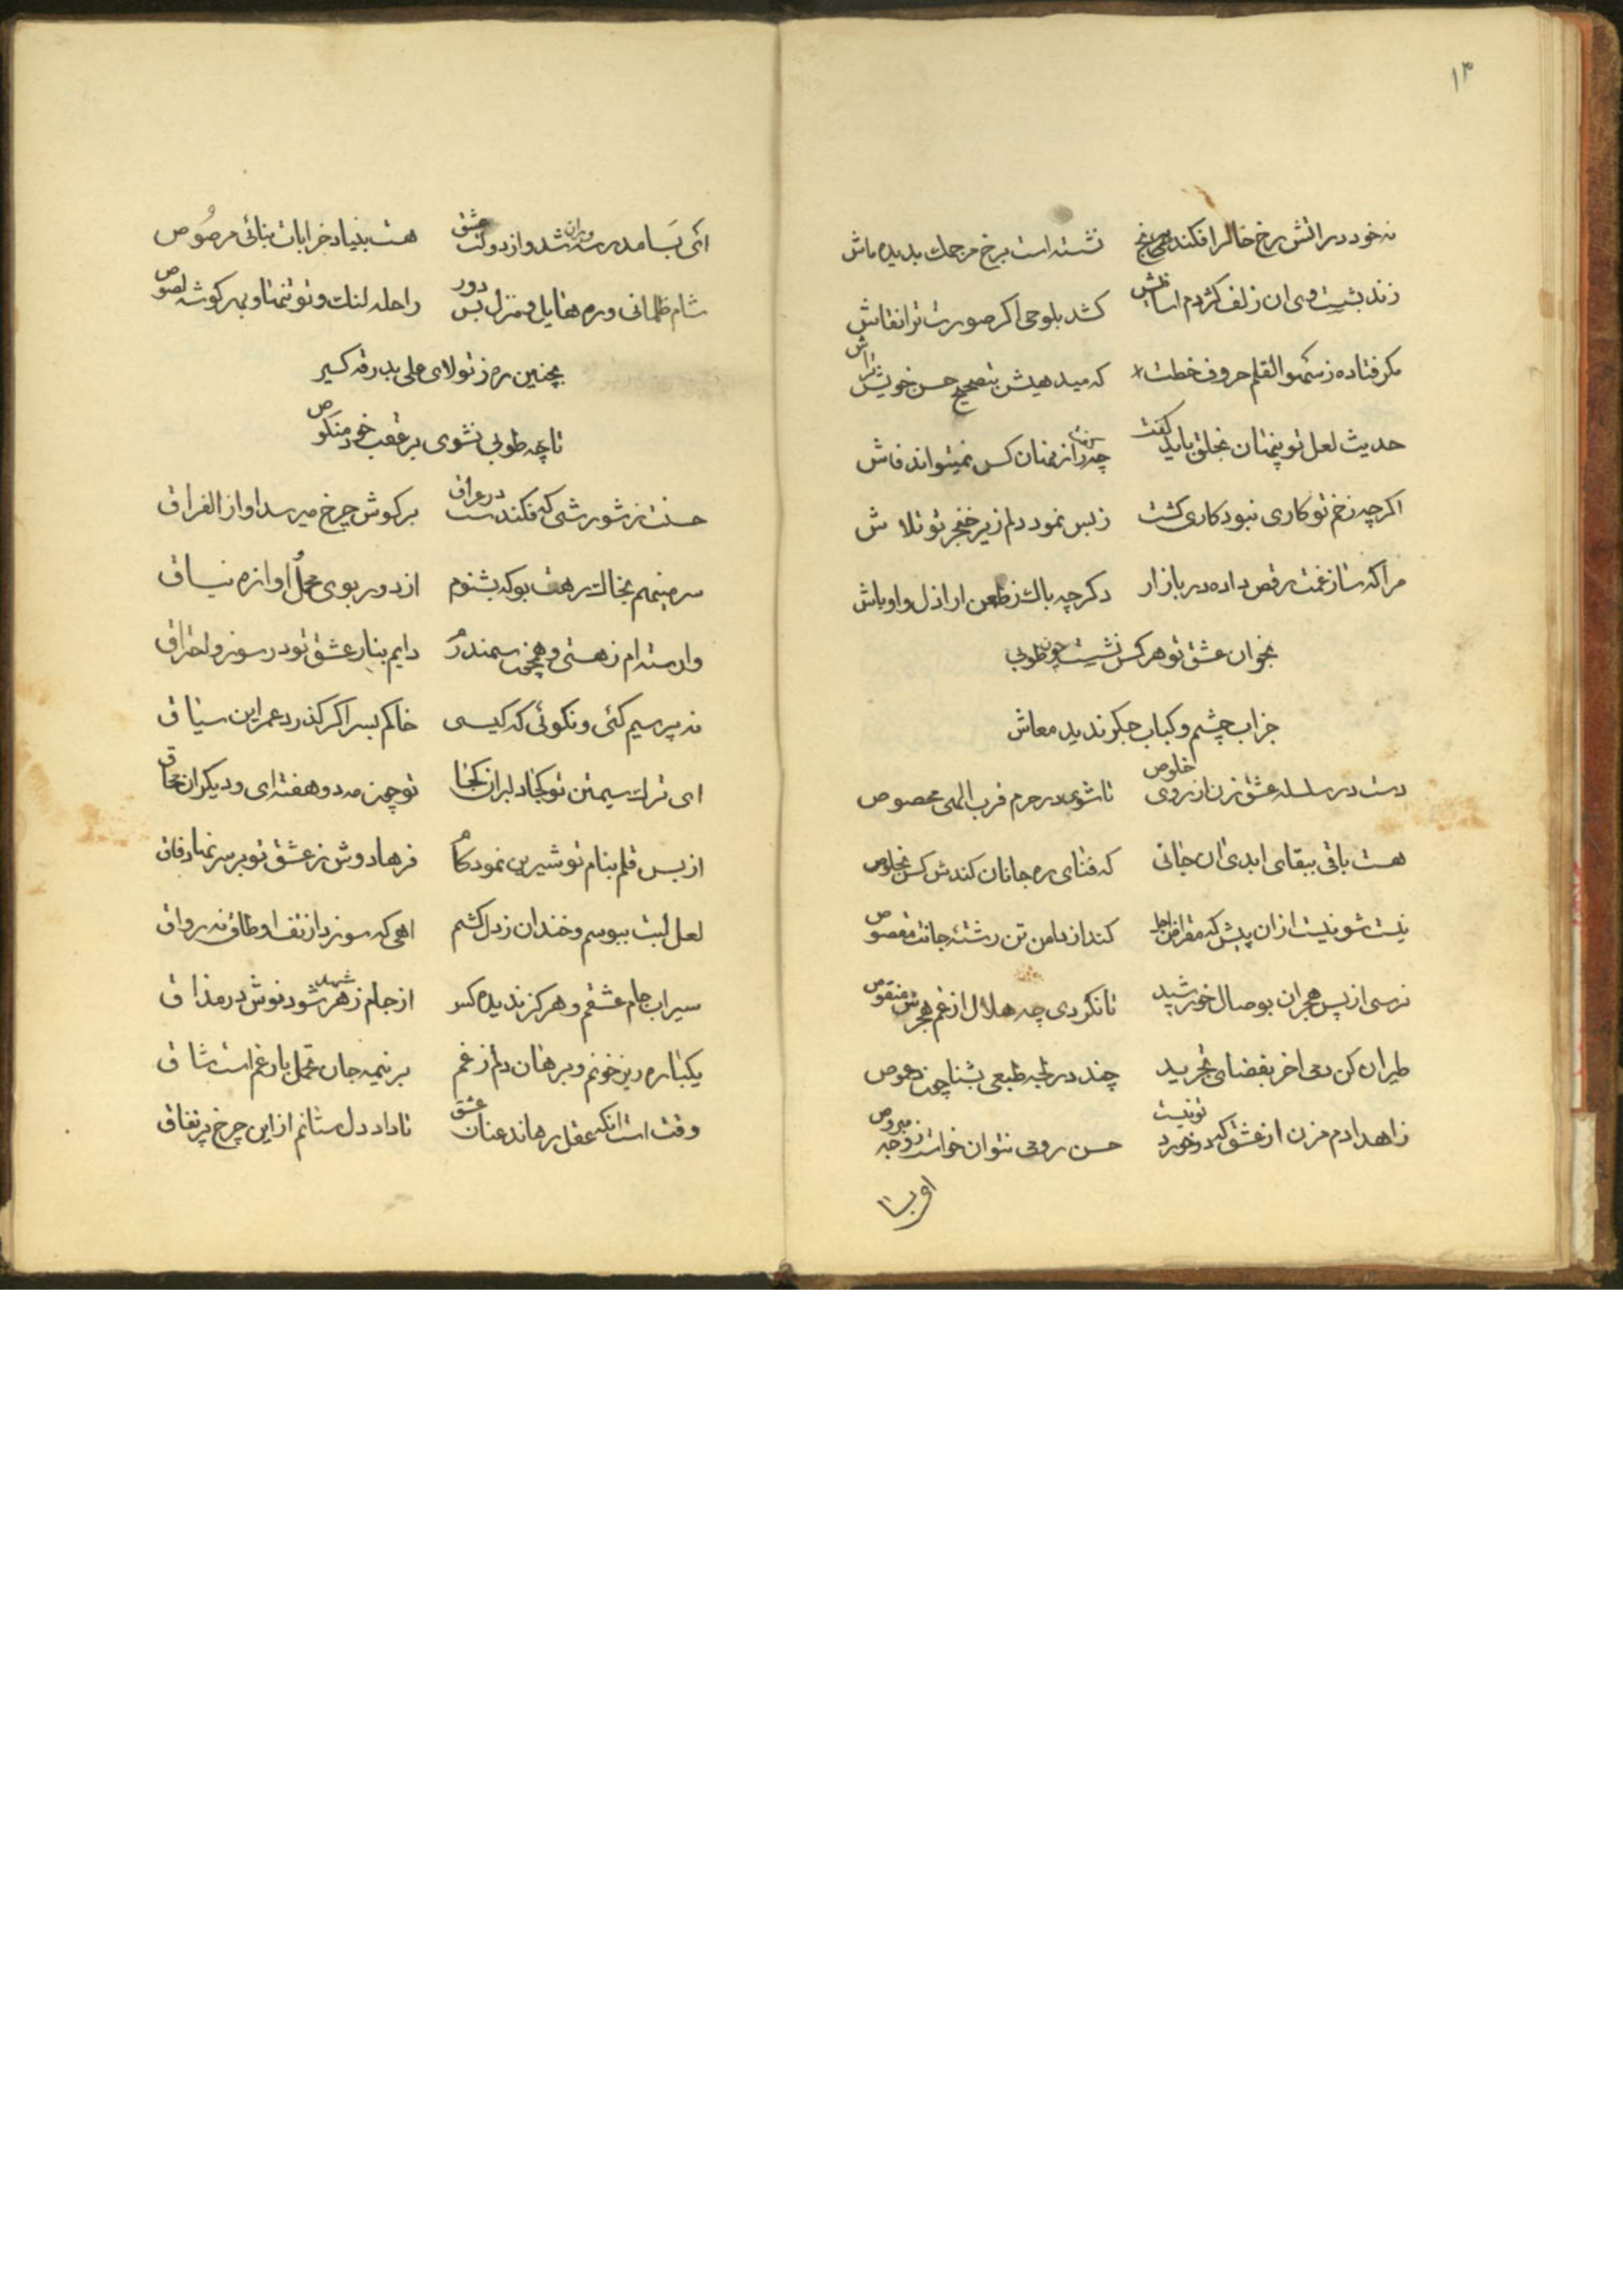 ۱۳
نه خود در اتش رخ خال را فکند نشسته است برخ مردمك بدیده ماش
زند بشست وی ان زلف کژدم اسا نیش کشد بلوحی اکر صورت ترا نقاش
مکر فتاده ز سهو القلم حروف خطت که میدهیش بتصحیح حسن خویش تراش
حدیث لعل تو پنهان بخلق باید کفت چه راز پنهان کس نمیتواند فاش
اکرچه زخم تو کاری نبود کاری کشت ز بس نمود دلم زیر خنجر تو تلاش
مرا که ساز غمت رقص داده در بازار دکر چه باك ز طعن اراذل و اوباش
بخوان عشق تو هر کس نشست چون طوبی
جز اب چشم و کباب جکر ندید معاش
دست در سلسله عشق زن از روی خلوص تا شوی در حرم قرب الهی مخصوص
هست باقی ببقای ابدی ان جانی که فنای ره جانان کندش کس بخلوص
نیست شو نیست از ان پیش که مقراض اجل کند از دامن تن رشتهٔ جانت مقصوص
نرسی از پس هجران بوصال خورشید تا نکردی چه هلال از غم هجرش منقوص
طیران کن دمی اخر بفضای تجرید چند در لجه طبعی بشنا چون دعموص
زاهدا دم مزن از عشق که در خورد تو نیست حسن رومی نتوان خواست ز وجه مبروص
ای بسا
ای بسا مدرسه ویران شد و از دولت عشق هست بنیاد خرابات بنائی مرصوص
شام ظلمانی و ره هایل و منزل بس دور راحله لنك و تو تنها و بهر کوشه لصوص
بچنین ره ز تولای علی بدرقه کیر
تا چه طوبی نشوی بر عقب خود منکوص
حسنت ز شورشی که فکندست در عراق بر کوش چرخ میرسد اواز الفراق
سر مینهم بخاك رهت بو که بشنوم از دور بوی محمل و اوازه نیاق
وارسته ام ز هستی و همچون سمندرم دایم بنار عشق تو در سوز و احتراق
نه پرسیم کئی و نکوئی که کیستی خاکم بسر اکر کذرد عمر این سیاق
ای ترك سیمتن تو کجا دلبران کجا تو چون مه دو هفته ای و دیکران محاق
از بس قلم بنام تو شیرین نمود کام فرهادوش ز عشق تو بر سر نهاد فاق
لعل لبت ببوسم و خندان ز دل کشم اهی که سوزد از تف او طاق نه رواق
سیراب جام عشقم و هرکز ندیده کس از جام زهر شهد شود نوش در مذاق
یکباره ریز خونم و برهان دلم ز غم بر نیمه جان تحمل بار غم است شاق
وقت است انکه عقل رهاند عنان عشق تا داد دل ستانم از این چرخ پر نفاق